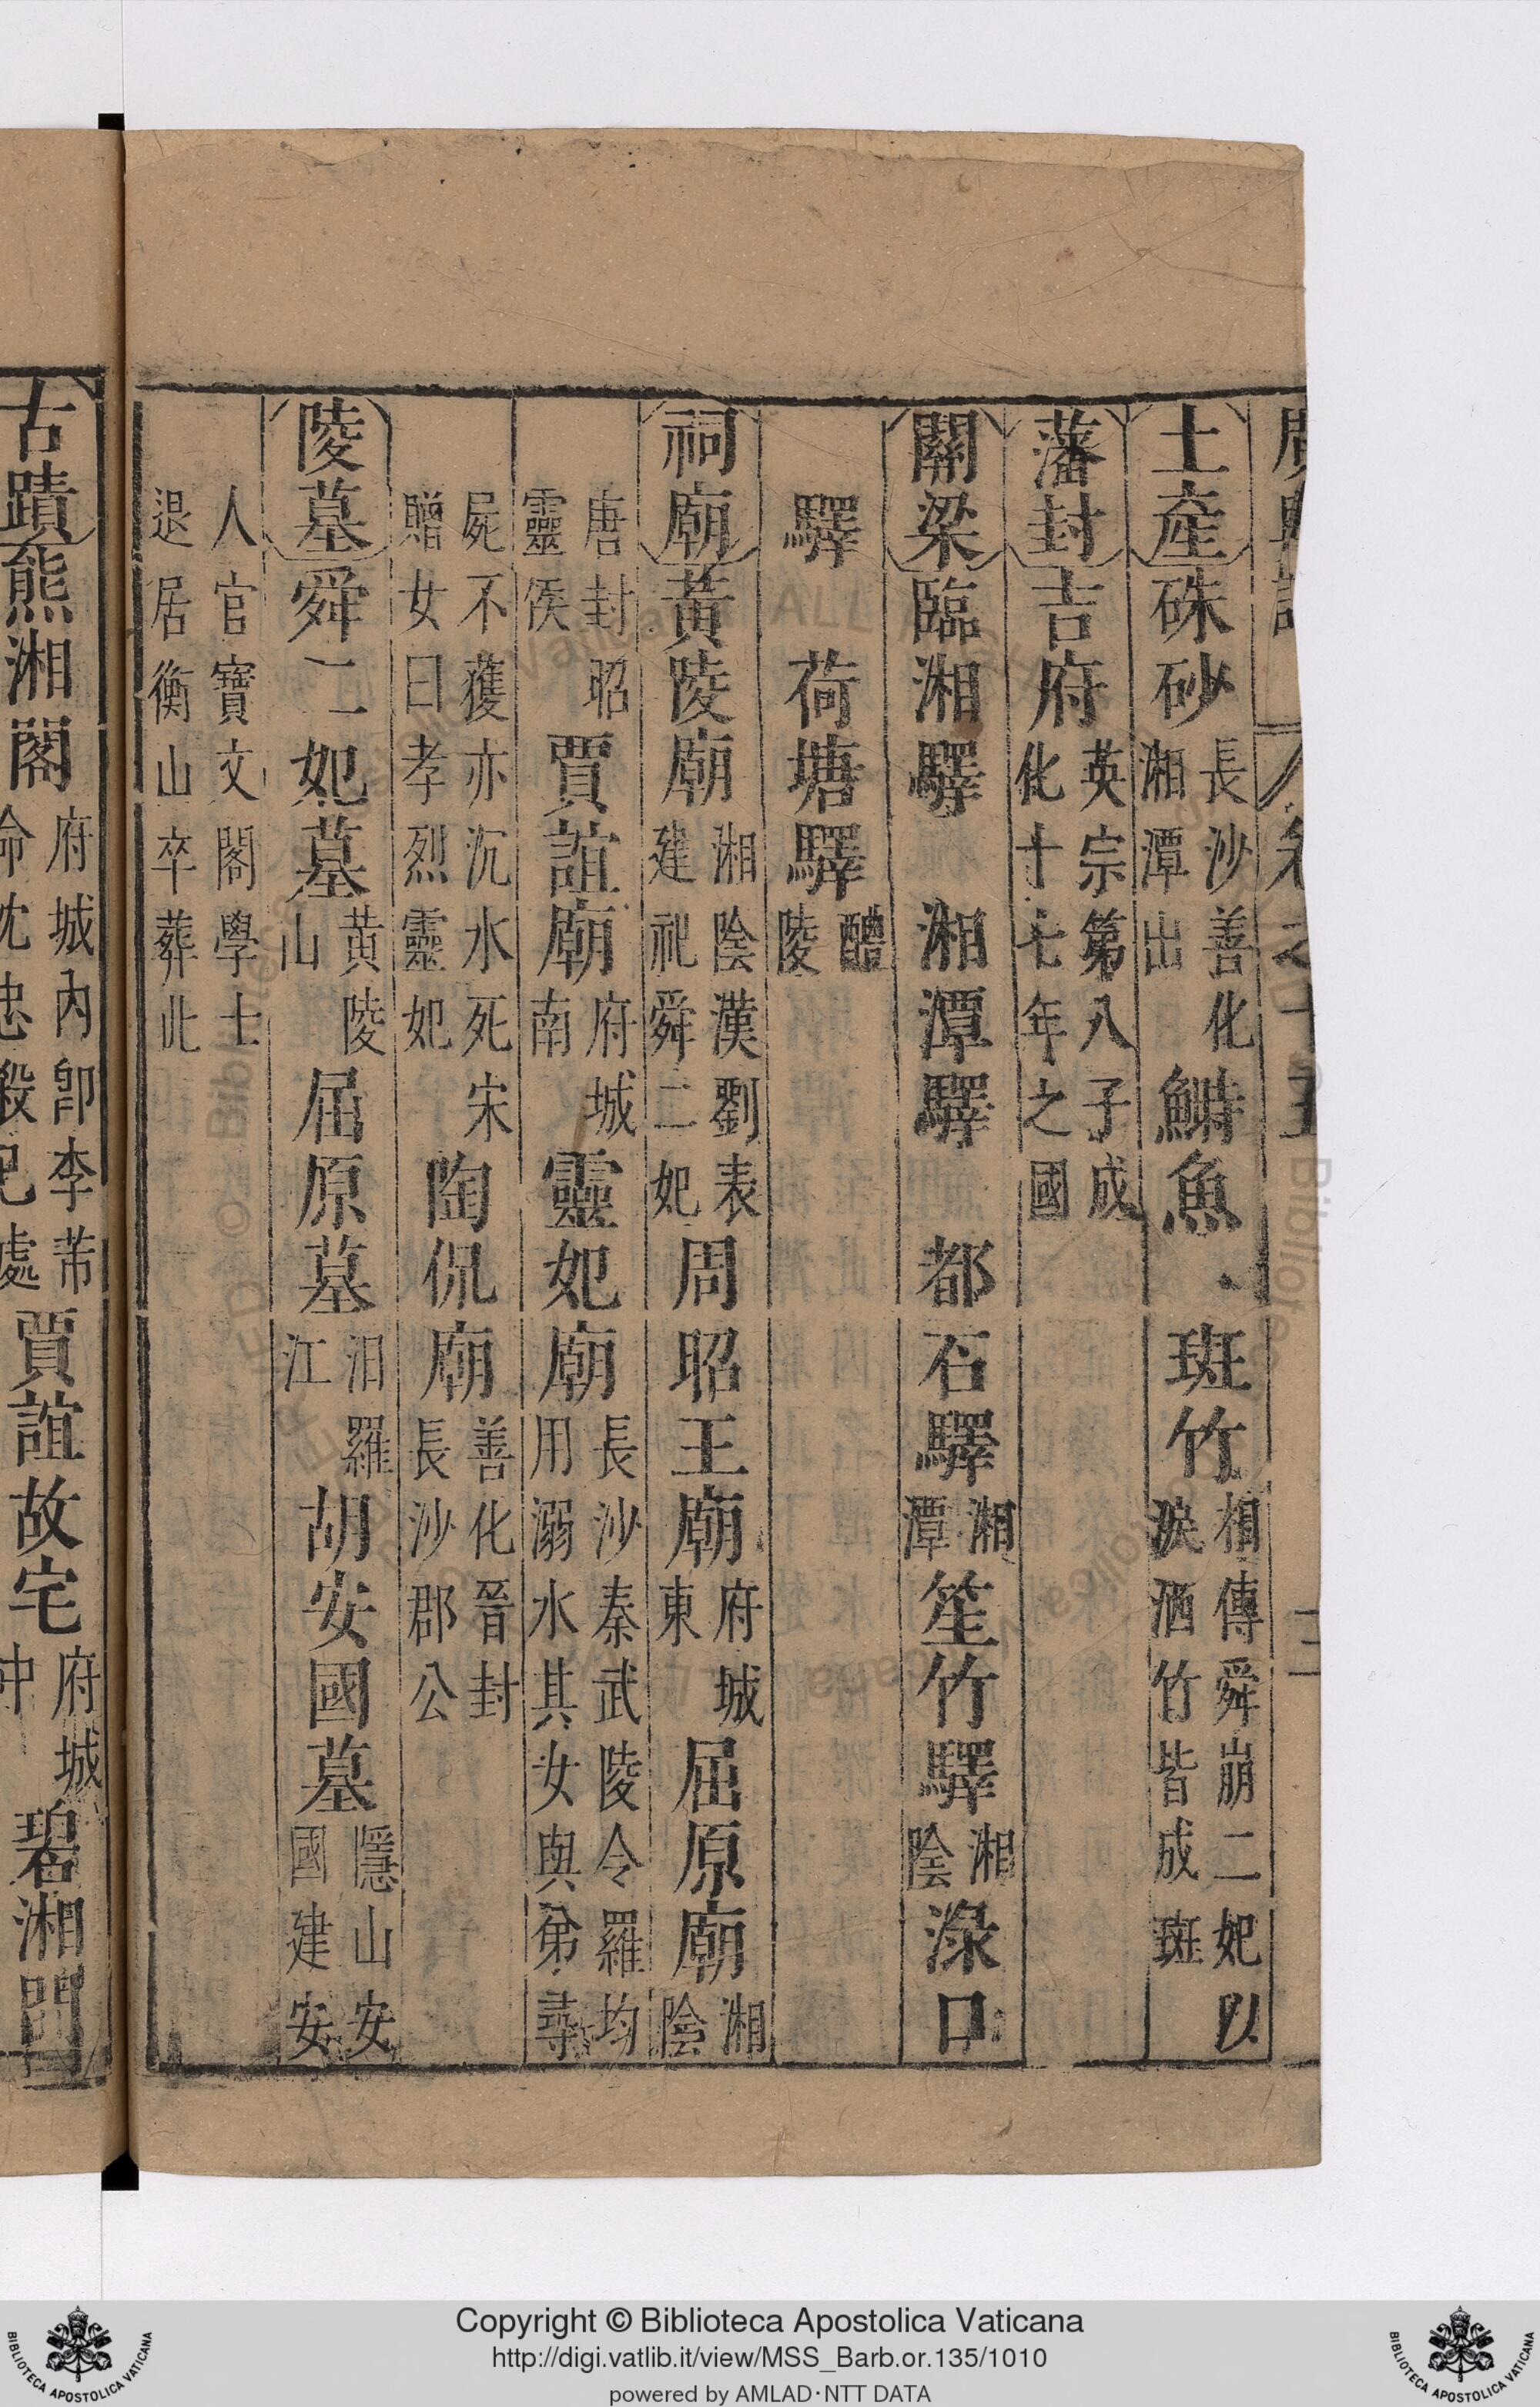 卷之十五
土產硃砂長沙善化湘潭出鰣魚斑竹相傳舜崩二妃以淚洒竹皆成斑
藩封吉府英宗第八子成化十七年之國
關梁臨湘驛湘潭驛都石驛湘潭笙竹驛湘陰淥口
驛荷塘驛醴陵
祠廟黃陵廟湘陰漢劉表建祀舜二妃周昭王廟府城東屈原廟湘陰
唐封昭靈侯賈誼廟府城南靈妃廟長沙秦武陵令羅均用溺水其女與弟尋
屍不獲亦沉水死宋贈女曰孝烈靈妃陶侃廟善化晉封長沙郡公
陵墓舜二妃墓黃陵山屈原墓汨羅江胡安國墓隱山安國建安
人官寶文閣學士退居衡山卒葬此
古蹟熊湘閣府城內卽李芾命沈忠殺已處賈誼故宅府城中碧湘門
Copyright © Biblioteca Apostolica Vaticana
http://digi.vatlib.it/view/MSS_Barb.or.135/1010
powered by AMLAD·NTT DATA
BIBLIOTECA APOSTOLICA VATICANA
BIBLIOTECA APOSTOLICA VATICANA